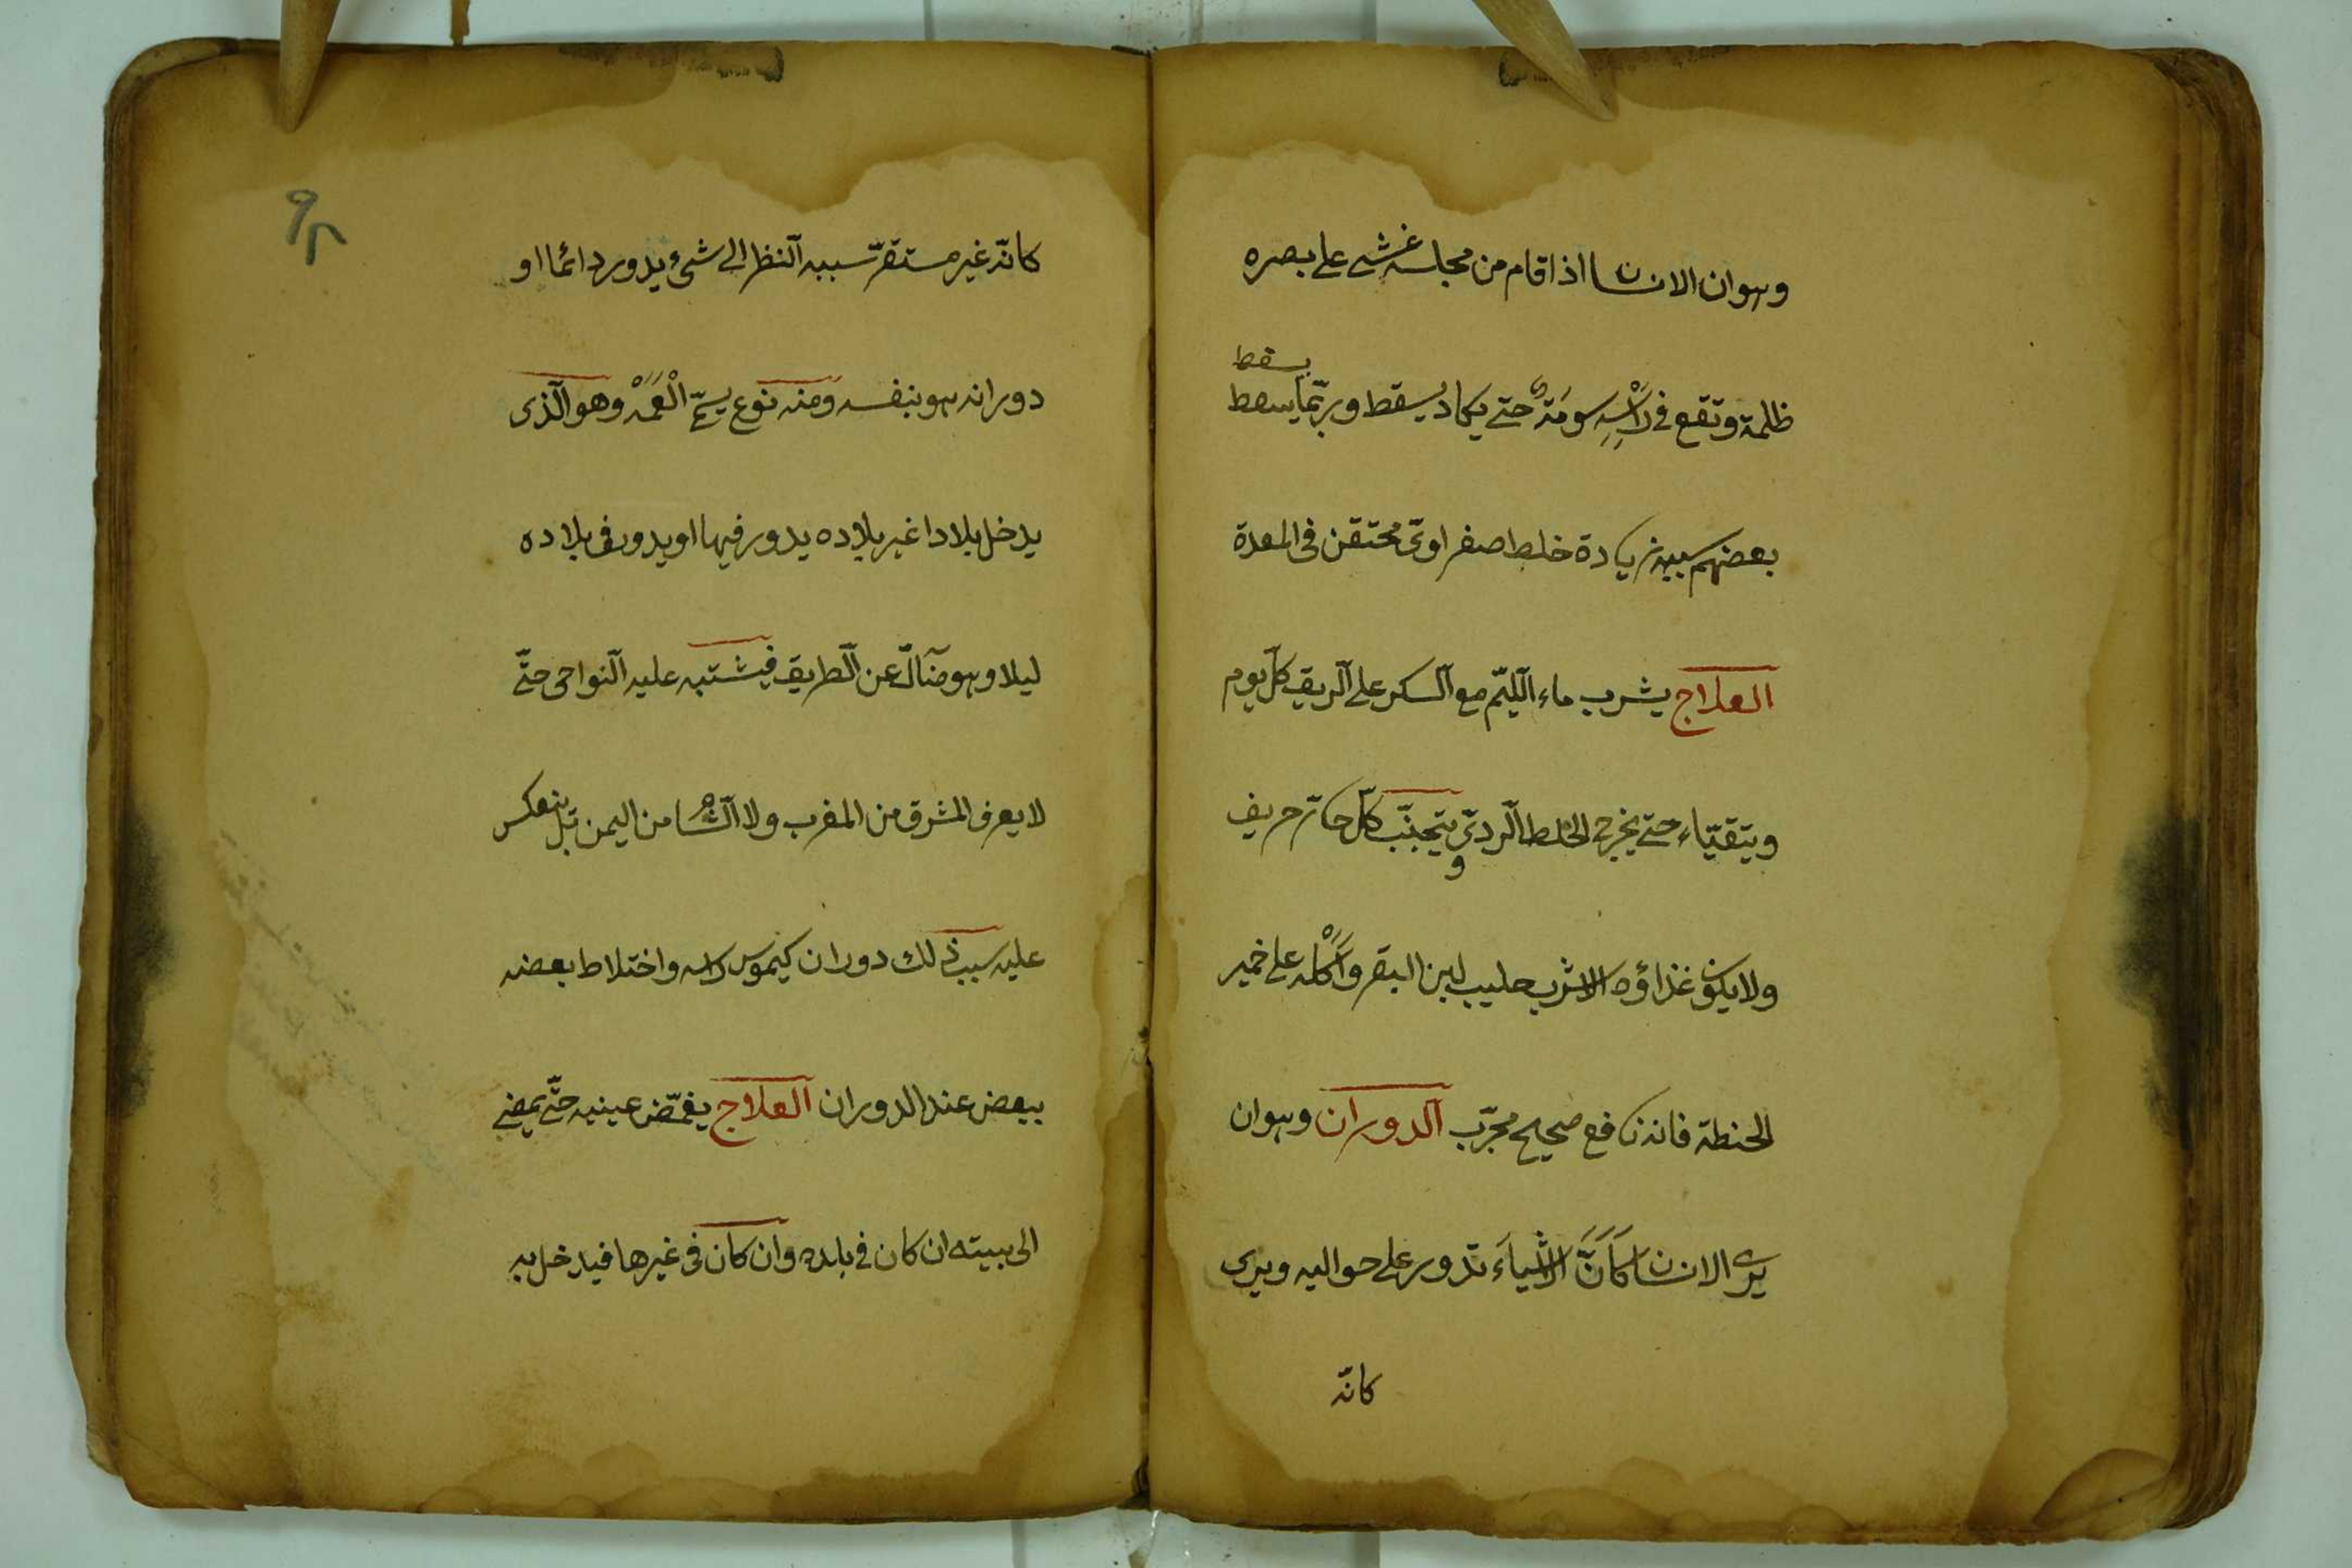 وهوان الانسان اذا قام من مجلسه غشى على بصره
يسقط
ظلمة وتقع في رَأْسِهِ سومَتهٌ حتى يكاد يسقط وربّما يسقط
بعضهم سببه زيادة خلط صفراوىّ محتقن فى المعدة
العلاج يشرب ماء اللّيمّ مع السكر على الريق كلّ يوم
ويتقيّاء حتى يخرج الخلط الردىّ ويتجنّب كلّ حارّ حريف
ولا يكون غذاؤه الا شرب حليب لبن البقر وَأَكْله على خمير
الحنطة فانه نافع صحيح مجرّب الدوران وهو ان
يرى الانسان كَاَنَّ الاشياءَ تدور على حواليه ويرى
كانّه
٩٢
كانّه غير مستقرّ سببه النظر الى شىء يدور دائما او
دورانه هو بنفسه ومنه نوع يسمّى الْعَمَهْ وهو الّذى
يدخل بلادا غير بلاده يدور فيها او يدور فى بلاده
ليلا وهو ضآلّ عن الطريق فيشتبه عليه النواحى حتّى
لا يعرف المشرق من المغرب ولا الشام من اليمن بل ينعكس
عليه سبب ذلك دوران كيموس راسه واختلاط بعضه
ببعض عند الدوران العلاج يغمّض عينيه حتّى يمضى
الى بيته ان كان في بلده وان كان فى غيرها فيدخل به